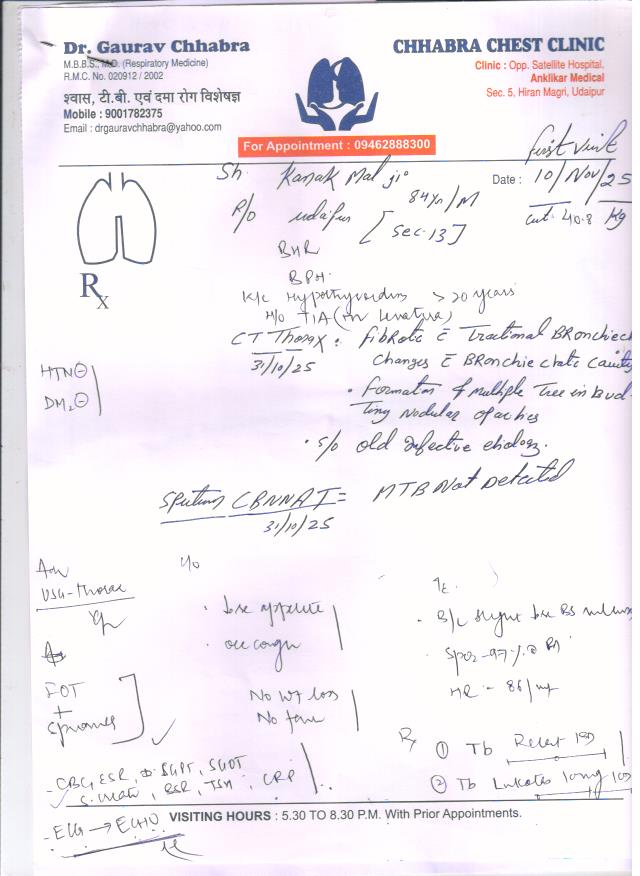 Dr. Gaurav Chhabra
M.B.B.S., M.D. (Respiratory Medicine)
R.M.C. No. 020912 / 2002
श्वास, टी.बी. एवं दमा रोग विशेषज्ञ
Mobile : 9001782375
Email : drgauravchhabra@yahoo.com
CHHABRA CHEST CLINIC
Clinic : Opp. Satellite Hospital,
Anklikar Medical
Sec. 5, Hiran Magri, Udaipur
For Appointment : 09462888300
First Visit
Sh. Kanak Mal ji
84yr/M
Date : 10/Nov/25
R/o Udaipur [Sec-13]
40.8 Kg
BHR
BPH
K/c Hypothyroidism >20 years
H/o TIA
CT Thorax : Fibrotic c Tractional Bronchiec
31/10/25
changes c Bronchiectatic Cavity
HTN⊖
DM2⊖
• Formation of multiple Tree in Bud-
ting nodular opacities
• S/o old infective etiology.
Sputum CBNNAT = MTB Not Detected
31/10/25
Adv
USG-Thorax
c/o
• appetite
• occ cough
No wt loss
No fever
• B/L slight BS
• SpO2-97%
HR - 86/mt
FOT
+
- CBC, ESR, SGPT, SGOT
S. Creat, RBS, TSH, CRP
- ECG → ECHO
Rx
① Tb
② Tb 10mg
VISITING HOURS : 5.30 TO 8.30 P.M. With Prior Appointments.